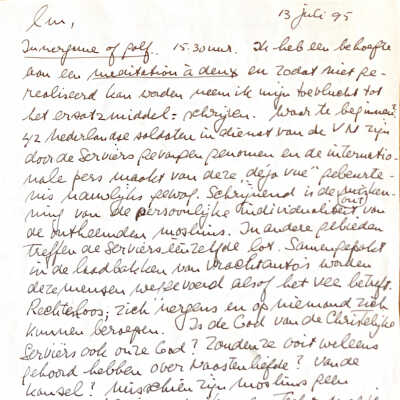 13 juli 95
Lm,
Innergime of golf. 15.30 uur. Ik heb een behoefte
aan een meditation à deux en zodat niet ge-
realiseerd kan worden neem ik mijn toevlucht tot
het ersatzmiddel = schrijven. Waar te beginnen?
42 nederlandse soldaten in dienst van de VN zijn
door de Serviërs gevangen genomen en de internatio-
nale pers maakt van deze "deja vue" gebeurte-
nis namelijks gewag. Schrijnend is de misken-
ning van de persoonlijke individualiteit van (out)
de ontheemden moslims. In andere gebieden
treffen de Serviërs eenzelfde lot. Samengepakt
in de laadbakken van vrachtauto's worden
deze mensen vervoerd alsof het vee betreft.
Rechteloos; zich nergens en op niemand zich
kunnen beroepen. Is de God van de Christelijke
Serviërs ook onze God? Zouden ze ooit weleens
gehoord hebben over Naastenliefde? Van de
kansel? Misschien zijn moslims geen